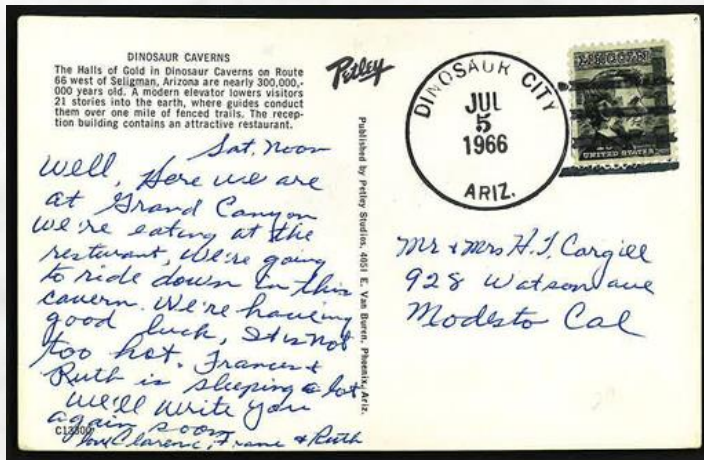 DINOSAUR CAVERNS
The Halls of Gold in Dinosaur Caverns on Route
66 west of Seligman, Arizona are nearly 300,000,-
000 years old. A modern elevator lowers visitors
21 stories into the earth, where guides conduct
them over one mile of fenced trails. The recep-
tion building contains an attractive restaurant.
Sat, Noon
Well, Here we are
at Grand Canyon
we're eating at the
resturant, we're going
to ride down in this
cavern. We're having
good luck, It is not
too hot. Frances &
Ruth is sleeping a lot
We'll write you
again soon
love Clarence, Frane & Ruth
C13300
Petley
Published by Petley Studios, 4051 E. Van Buren, Phoenix, Ariz.
DINOSAUR CITY
JUL
5
1966
ARIZ.
LINCOLN
UNITED STATES
Mr & Mrs H.T. Cargill
928 Watson ave
Modesto Cal